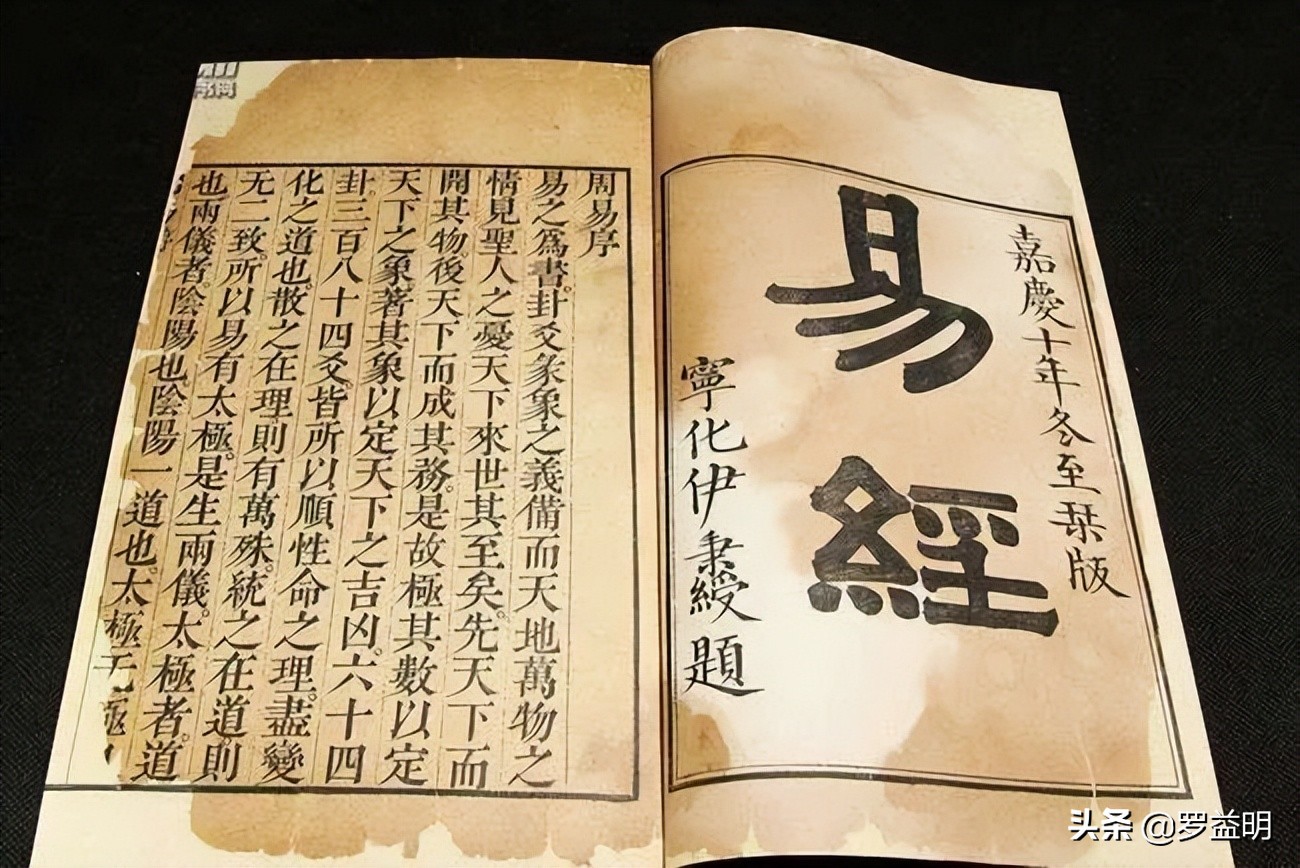 嘉慶十年冬至栞版
易經
寧化伊秉綬題
周易序
易之爲書。卦爻彖象之義備而天地萬物之
情見聖人之憂天下來世其至矣。先天下而
開其物。後天下而成其務。是故極其數以定
天下之象著其象以定天下之吉凶。六十四
卦。三百八十四爻。皆所以順性命之理。盡變
化之道也。散之在理則有萬殊。統之在道。則
无二致。所以易有太極。是生兩儀。太極者。道
也兩儀者。陰陽也。陰陽一道也。太極无極
头条 @罗益明